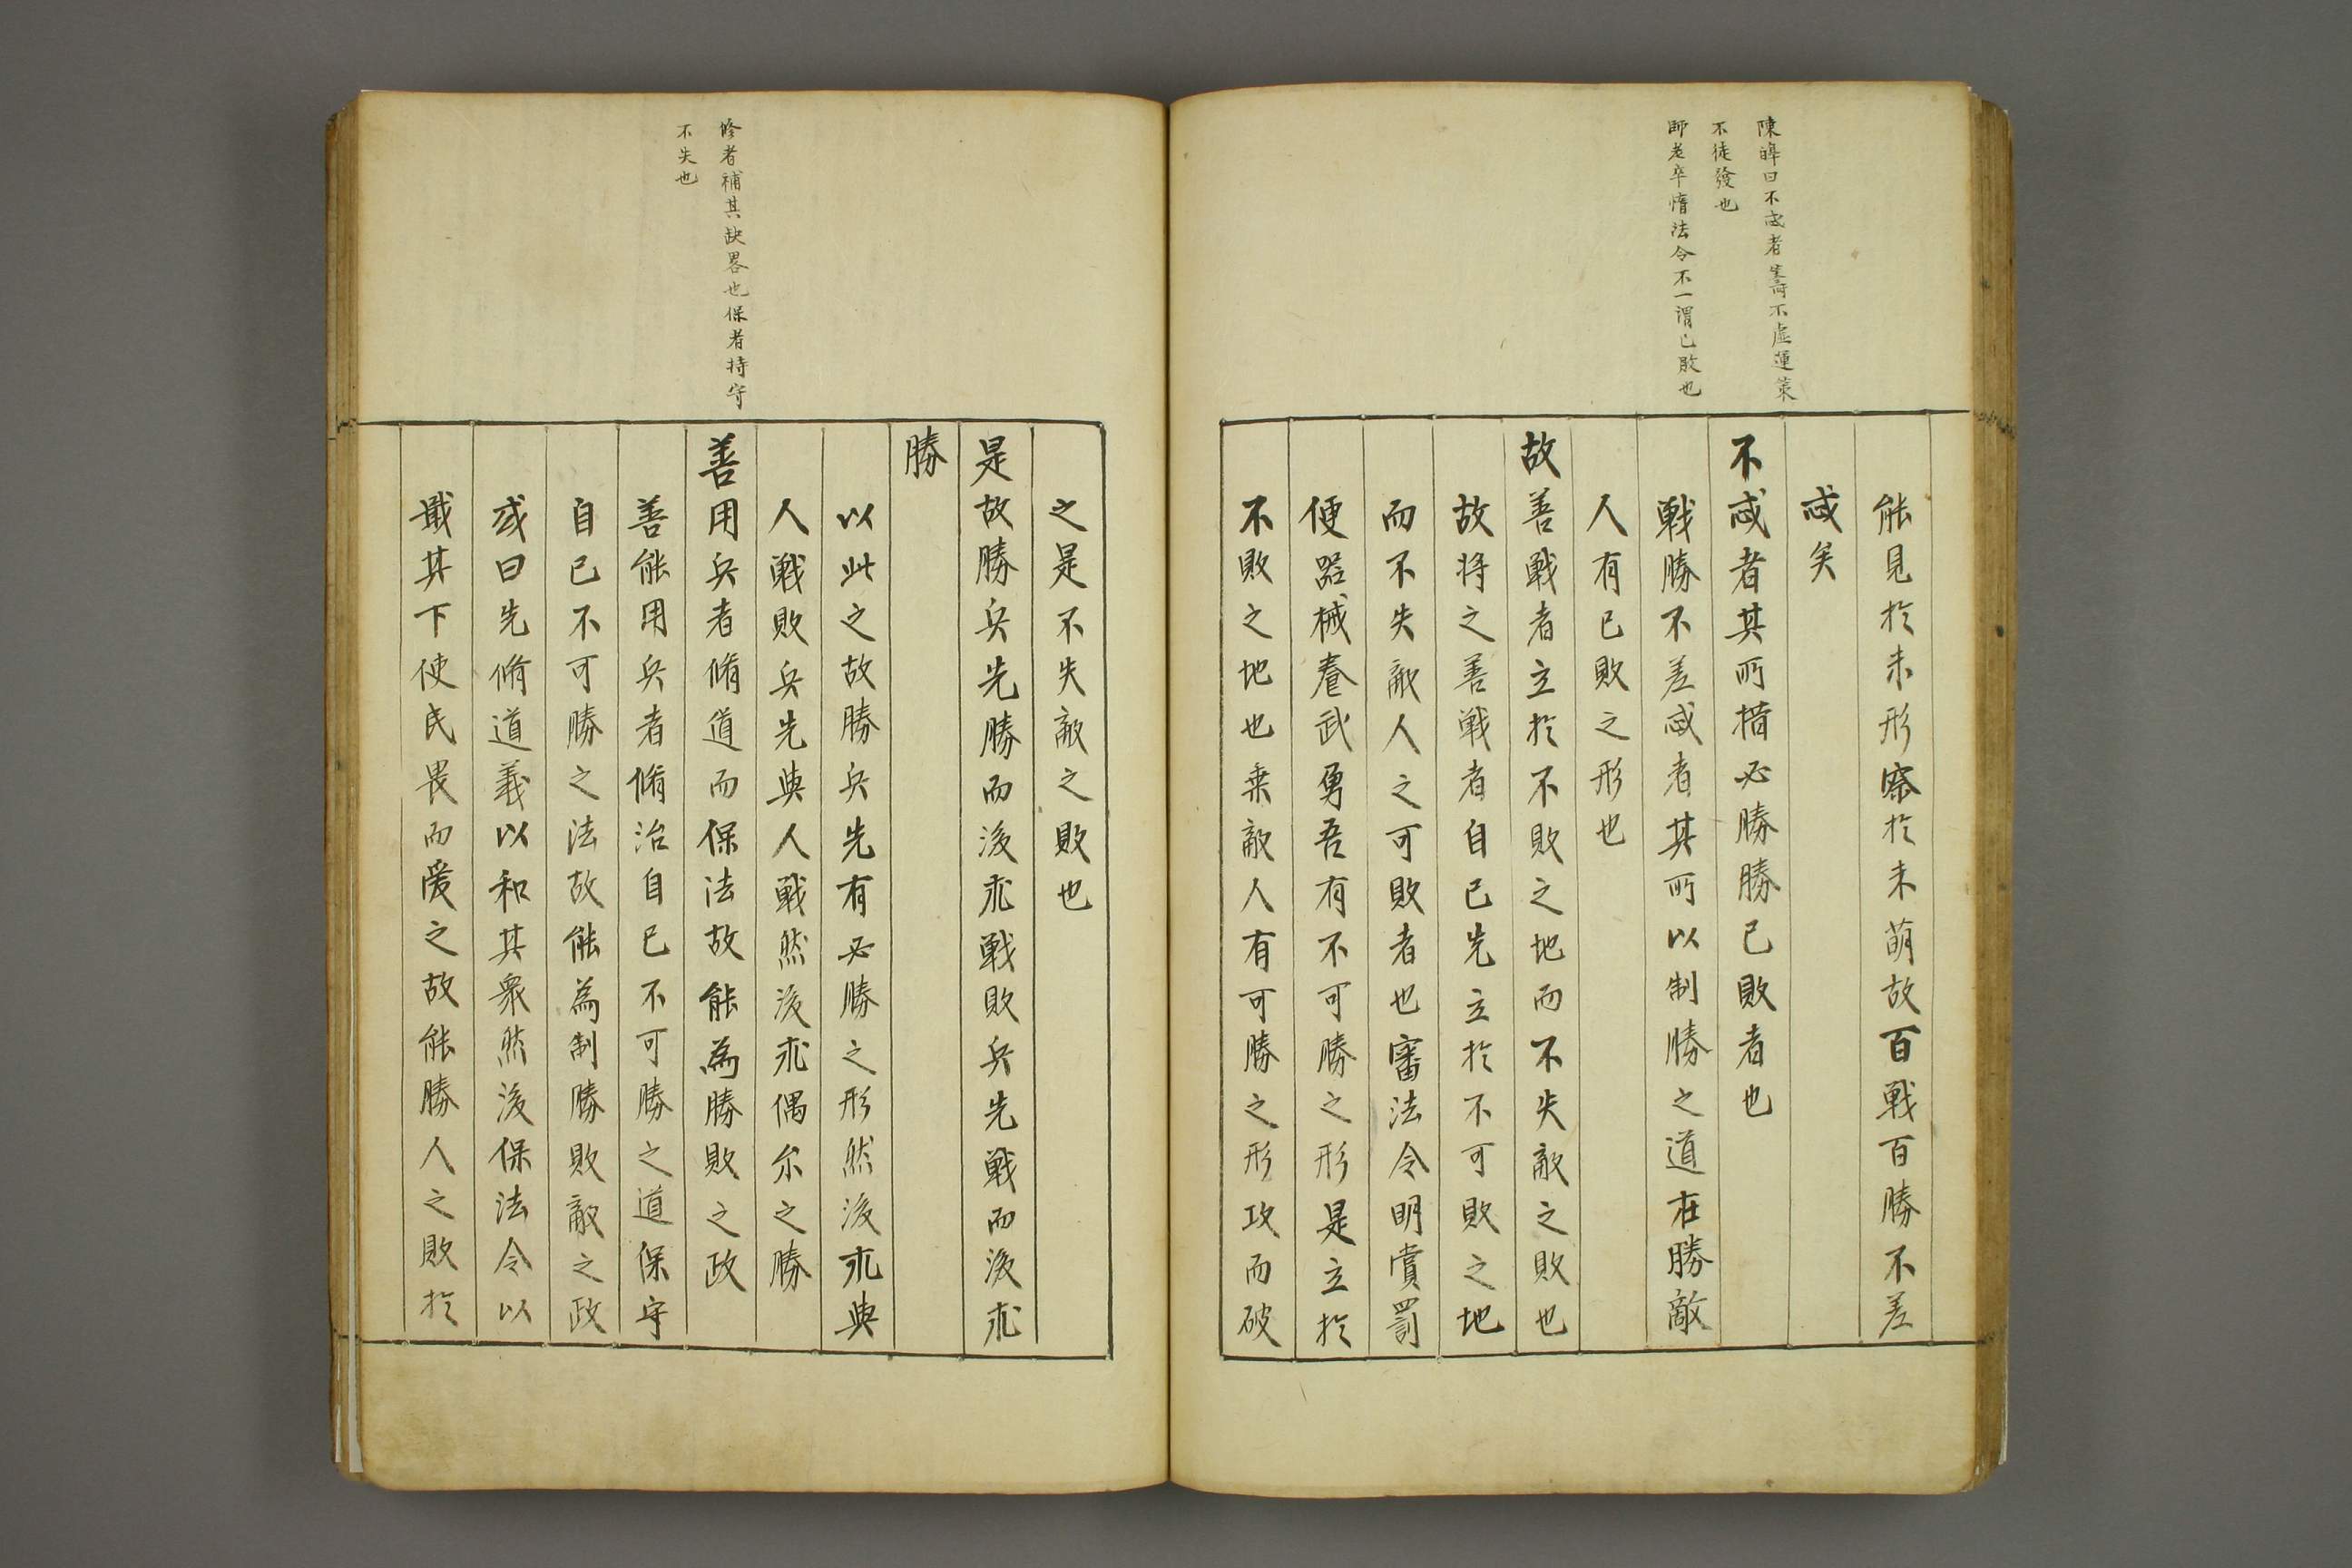 陳皥曰不忒者籌不虛運策
不徒發也
師老卒惰法令不一謂已敗也
能見於未形察於未萌故百戰百勝不差
忒矣
不忒者其所措必勝勝已敗者也
戰勝不差忒者其所以制勝之道在勝敵
人有已敗之形也
故善戰者立於不敗之地而不失敵之敗也
故将之善戰者自已先立於不可敗之地
而不失敵人之可敗者也審法令明賞罰
便器械養武勇吾有不可勝之形是立於
不敗之地也乗敵人有可勝之形攻而破
修者補其缺畧也保者持守
不失也
之是不失敵之敗也
是故勝兵先勝而後求戰敗兵先戰而後求
勝
以此之故勝兵先有必勝之形然後求與
人戰敗兵先與人戰然後求偶尔之勝
善用兵者脩道而保法故能為勝敗之政
善能用兵者脩治自已不可勝之道保守
自已不可勝之法故能為制勝敗敵之政
或曰先脩道義以和其衆然後保法令以
戢其下使民畏而愛之故能勝人之敗於